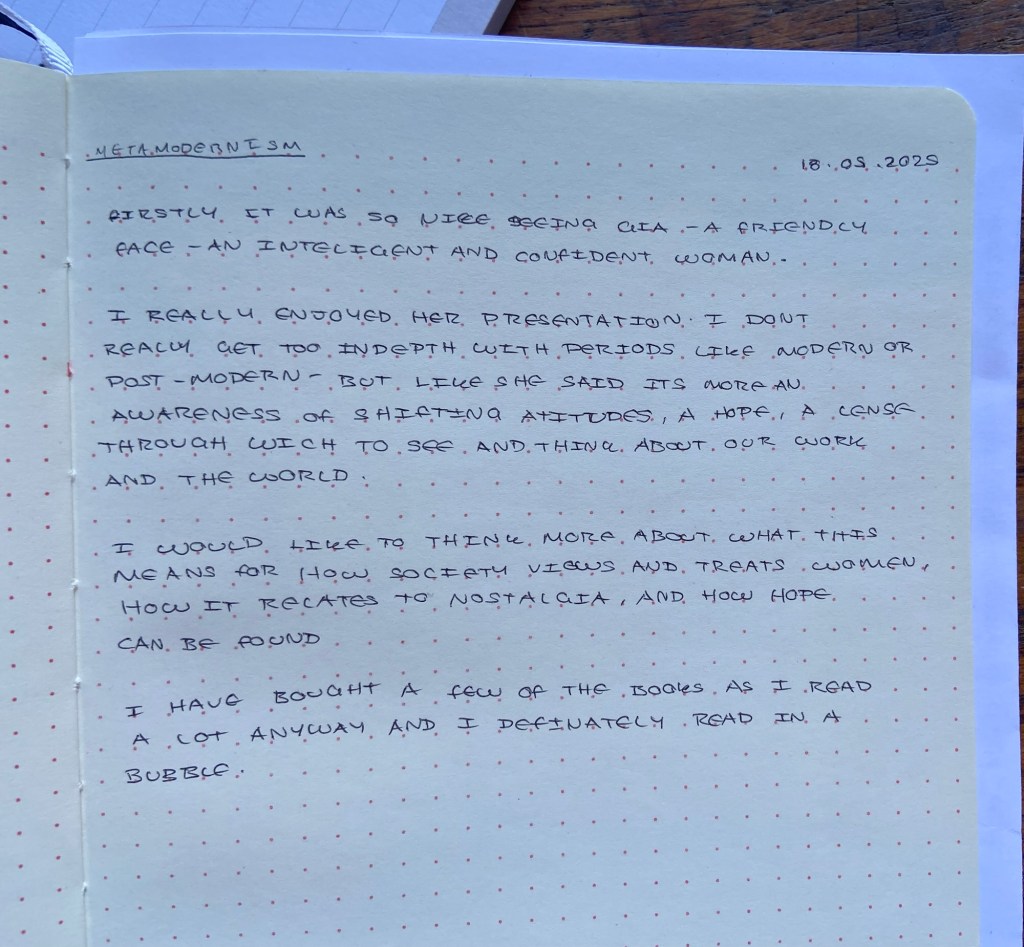 METAMODERNISM
18.05.2025
FIRSTLY IT WAS SO NICE SEEING GIA - A FRIENDLY
FACE - AN INTELIGENT AND CONFIDENT WOMAN.
I REALLY ENJOYED HER PRESENTATION. I DONT
REALLY GET TOO INDEPTH WITH PERIODS LIKE MODERN OR
POST-MODERN - BUT LIKE SHE SAID ITS MORE AN
AWARENESS OF SHIFTING ATITUDES, A HOPE, A LENSE
THROUGH WICH TO SEE AND THINK ABOUT OUR WORK
AND THE WORLD.
I WOULD LIKE TO THINK MORE ABOUT WHAT THIS
MEANS FOR HOW SOCIETY VIEWS AND TREATS WOMEN,
HOW IT RELATES TO NOSTALGIA, AND HOW HOPE
CAN BE FOUND
I HAVE BOUGHT A FEW OF THE BOOKS AS I READ
A LOT ANYWAY AND I DEFINATELY READ IN A
BUBBLE.